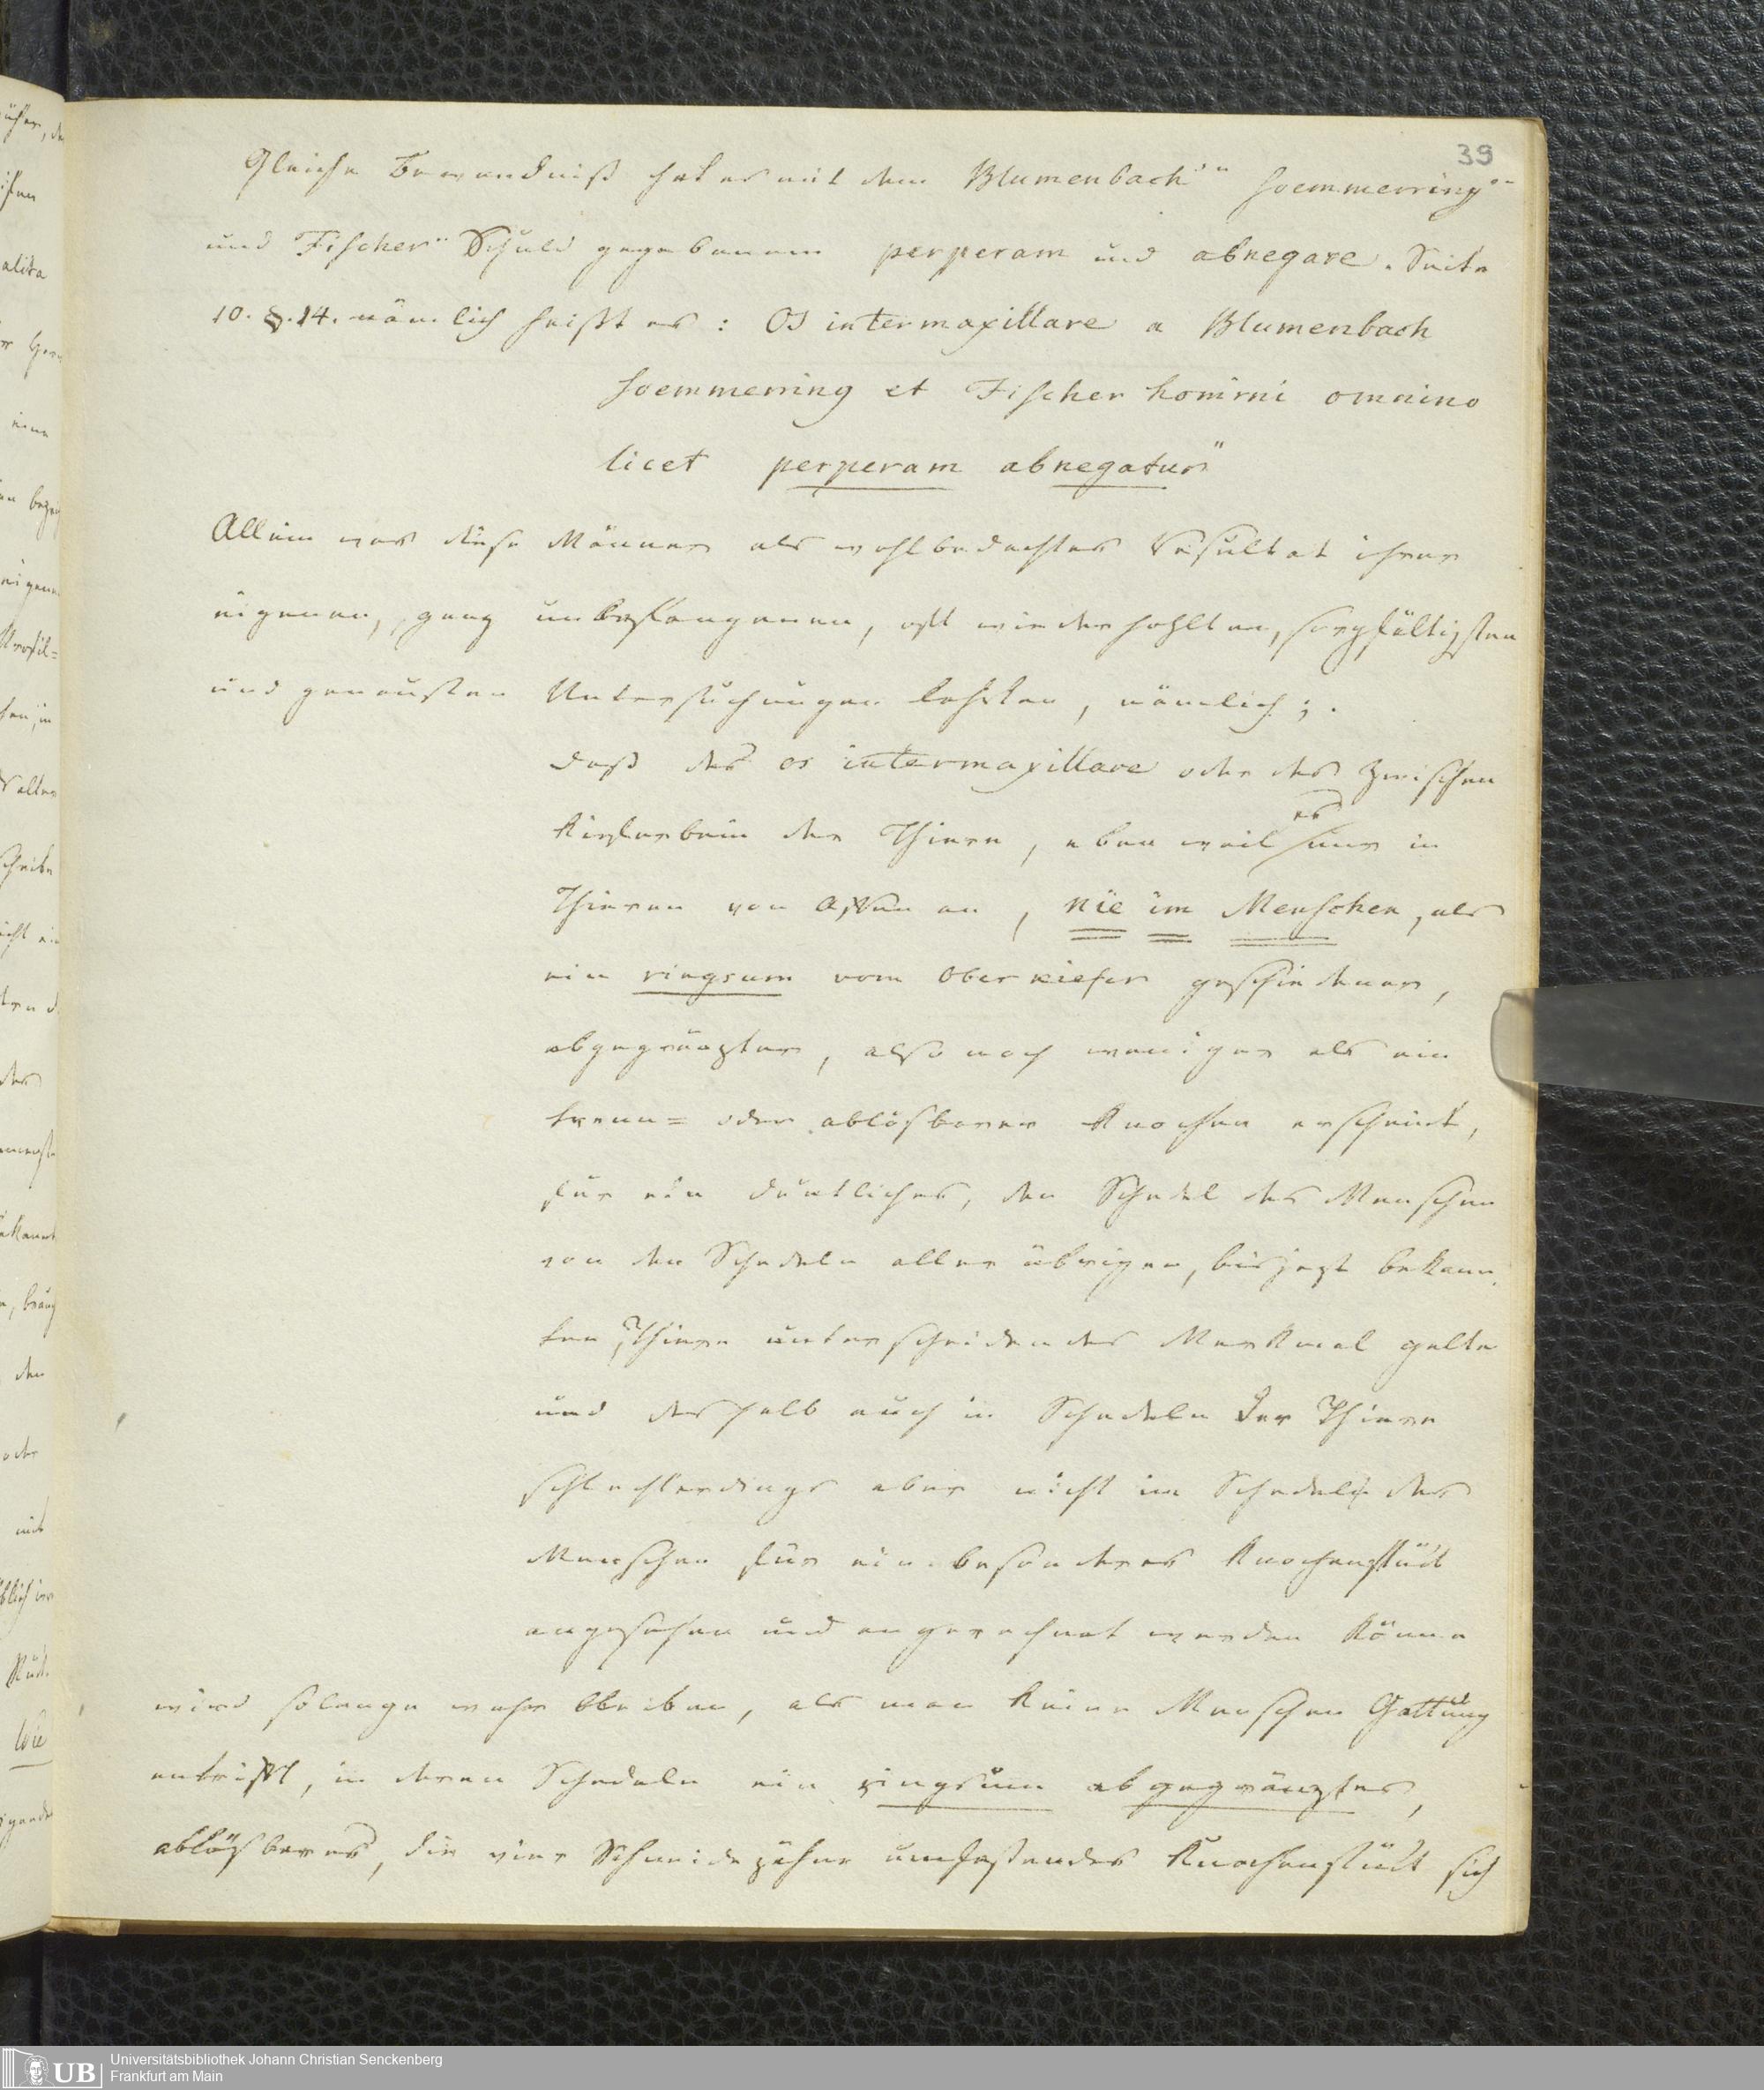 39
Gleiche Bewandniß hat es mit dem Blumenbach'' Soemmerring''
und Fischer'' Schuld gegebenen perperam und abnegare. Seite
10. §. 14. nämlich heißt es: Os intermaxillare a Blumenbach
Soemmerring et Fischer homini omnino
licet perperam abnegatur"
Allein was diese Männer als wohlbedachtes Resultat ihrer
eigenen, ganz unbefangenen, oft wiederhohlten, sorgfältigsten
und genausten Untersuchungen lehrten, nämlich;.
daß das os intermaxillare oder das Zwischen
Kieferbein der Thiere, eben weil es nur in
Thieren von Affen an, nie im Menschen, als
ein ringsum vom Oberkiefer geschiedener,
abgegränzter, also noch weniger als ein
trenn= oder ablösbarer Knochen erscheint,
für ein deutliches, den Schedel des Menschen
von den Schedeln aller übrigen, bis jezt bekann
ten Thiere unterscheidendes Merkmal gelte
und deshalb auch in Schedeln der Thiere
schlechterdings aber nicht im Schedel des
Menschen für ein besonderes Knochenstück
angesehen und angerechnet werden könne
wird solange wahr bleiben, als man keine Menschen Gattung
antrifft, in deren Schedeln ein ringsum abgegränztes,
ablösbares, die vier Schneidezähne umfassendes Knochenstück sich
UB
Universitätsbibliothek Johann Christian Senckenberg
Frankfurt am Main